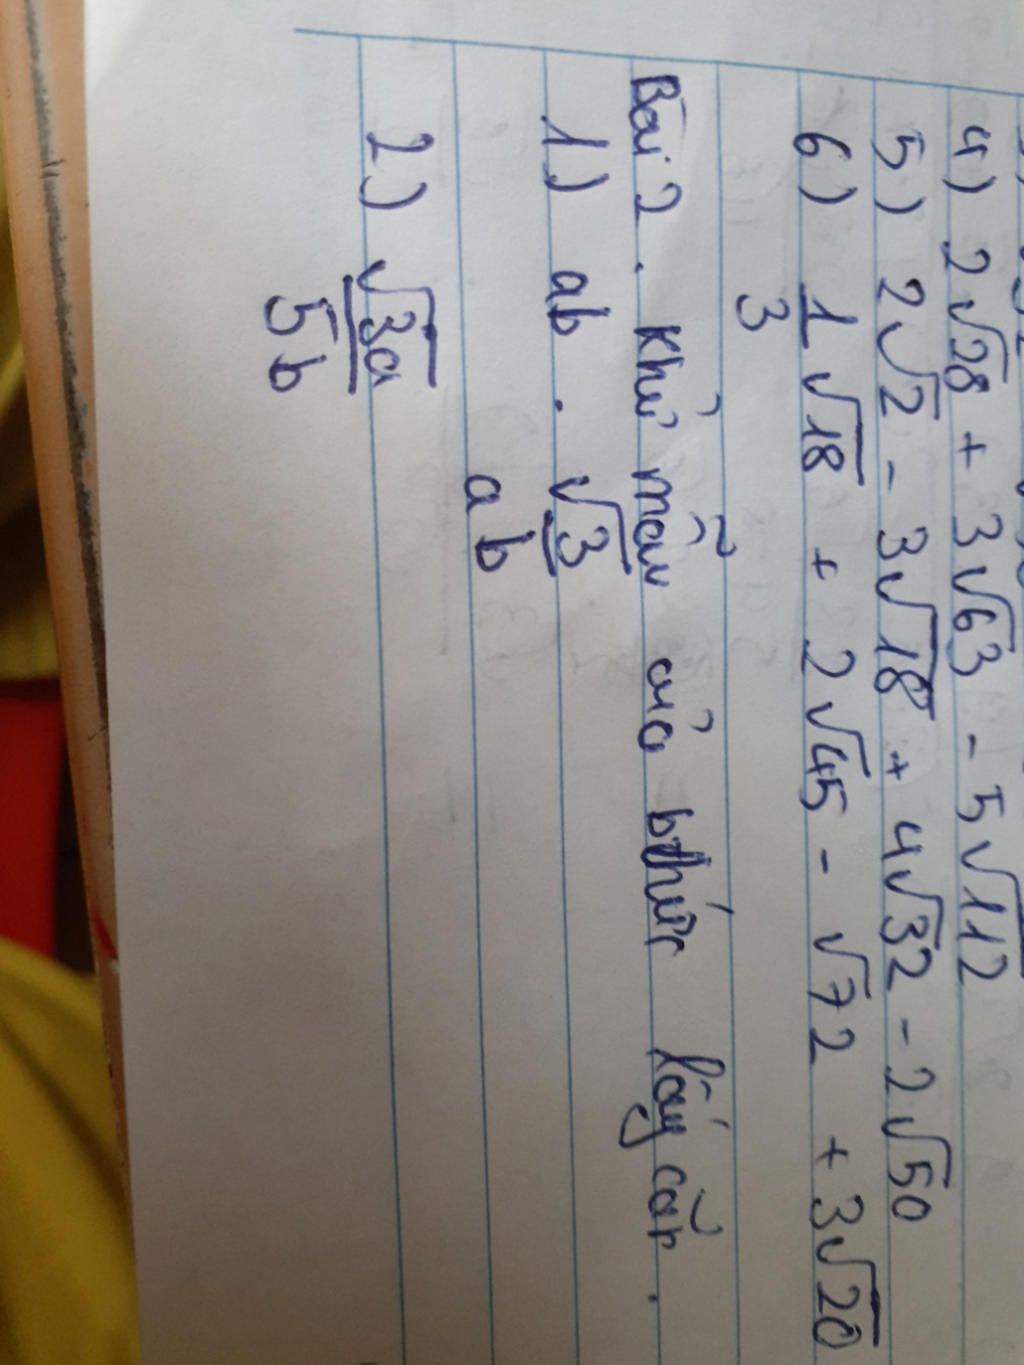 4) 2√28 + 3√63 - 5√112
5) 2√2 - 3√18 + 4√32 - 2√50
6) 1/3 √18 + 2√45 - √72 + 3√20
Bài 2. Khử mẫu của bthức lấy căn.
1) ab . √3/ab
2) √3a/5b